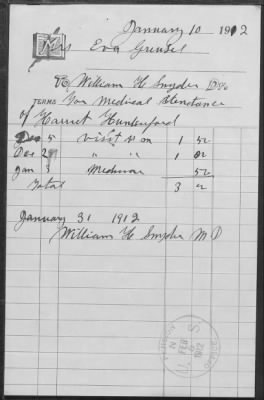 January 10 1912
Mrs Eva Grensel
To William H Snyder Dr
TERMS For Medical Attendance
of Harriet Hunterford
Dec 5 visit 1 50
Dec 29 " " 1 00
Jan 3 Medicine 50
Total 3 00
January 31 1912
William H Snyder M D
FEB
1912